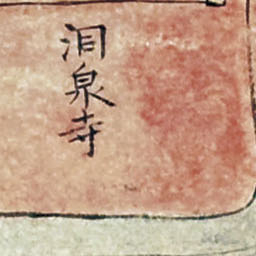 洞泉寺